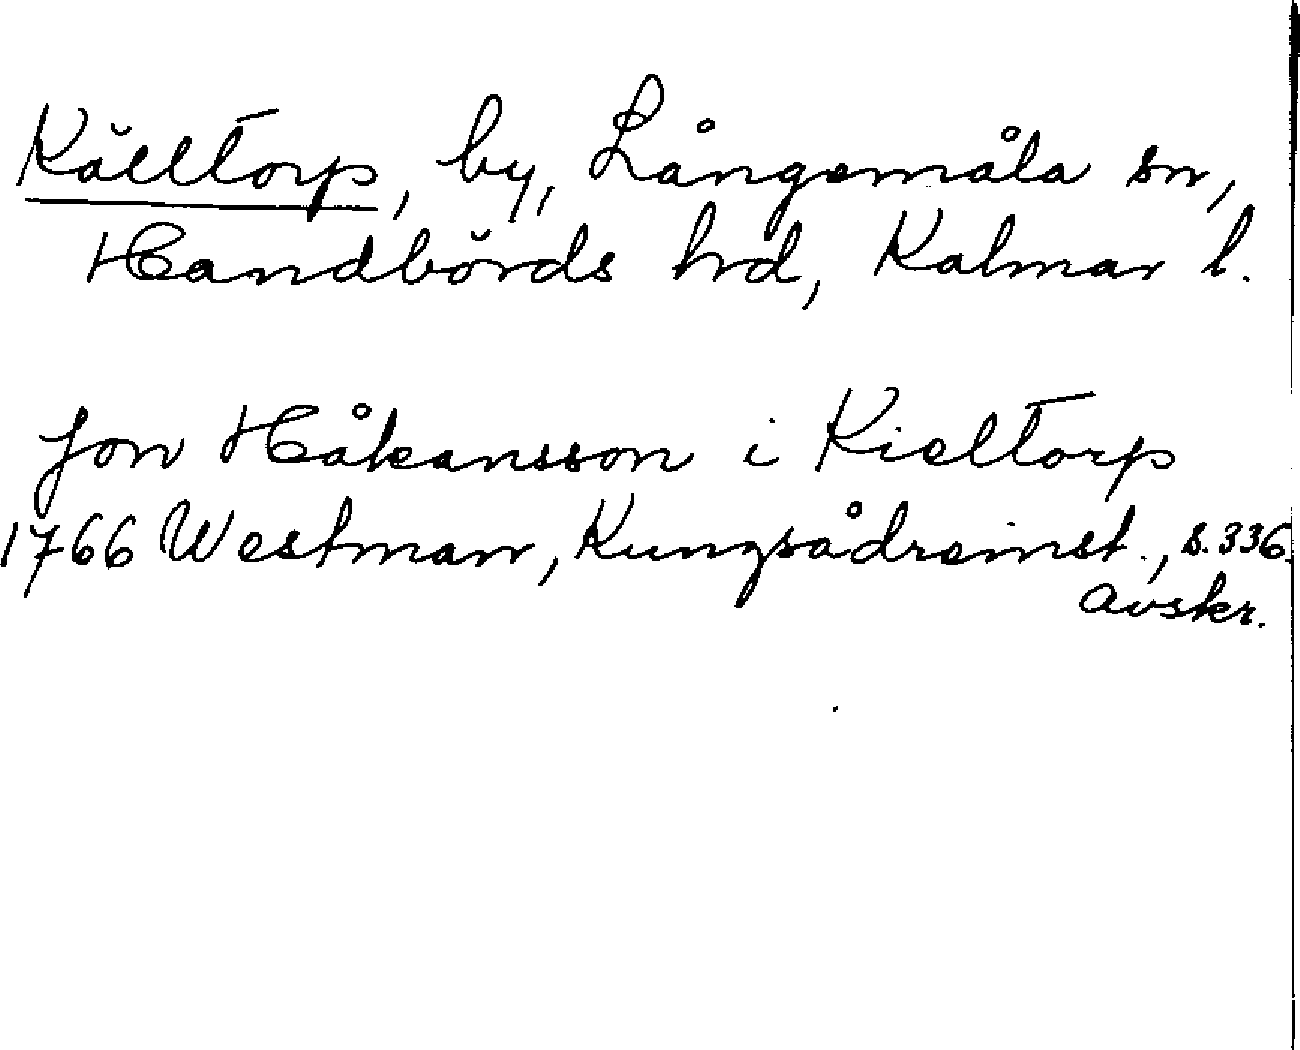 Källtorp, by, Långemåla sn,
Handbörds hrd, Kalmar l.
Jon Håkansson i Kieltorp
1766 Westman, Kungsådreinst., s. 336.
avskr.